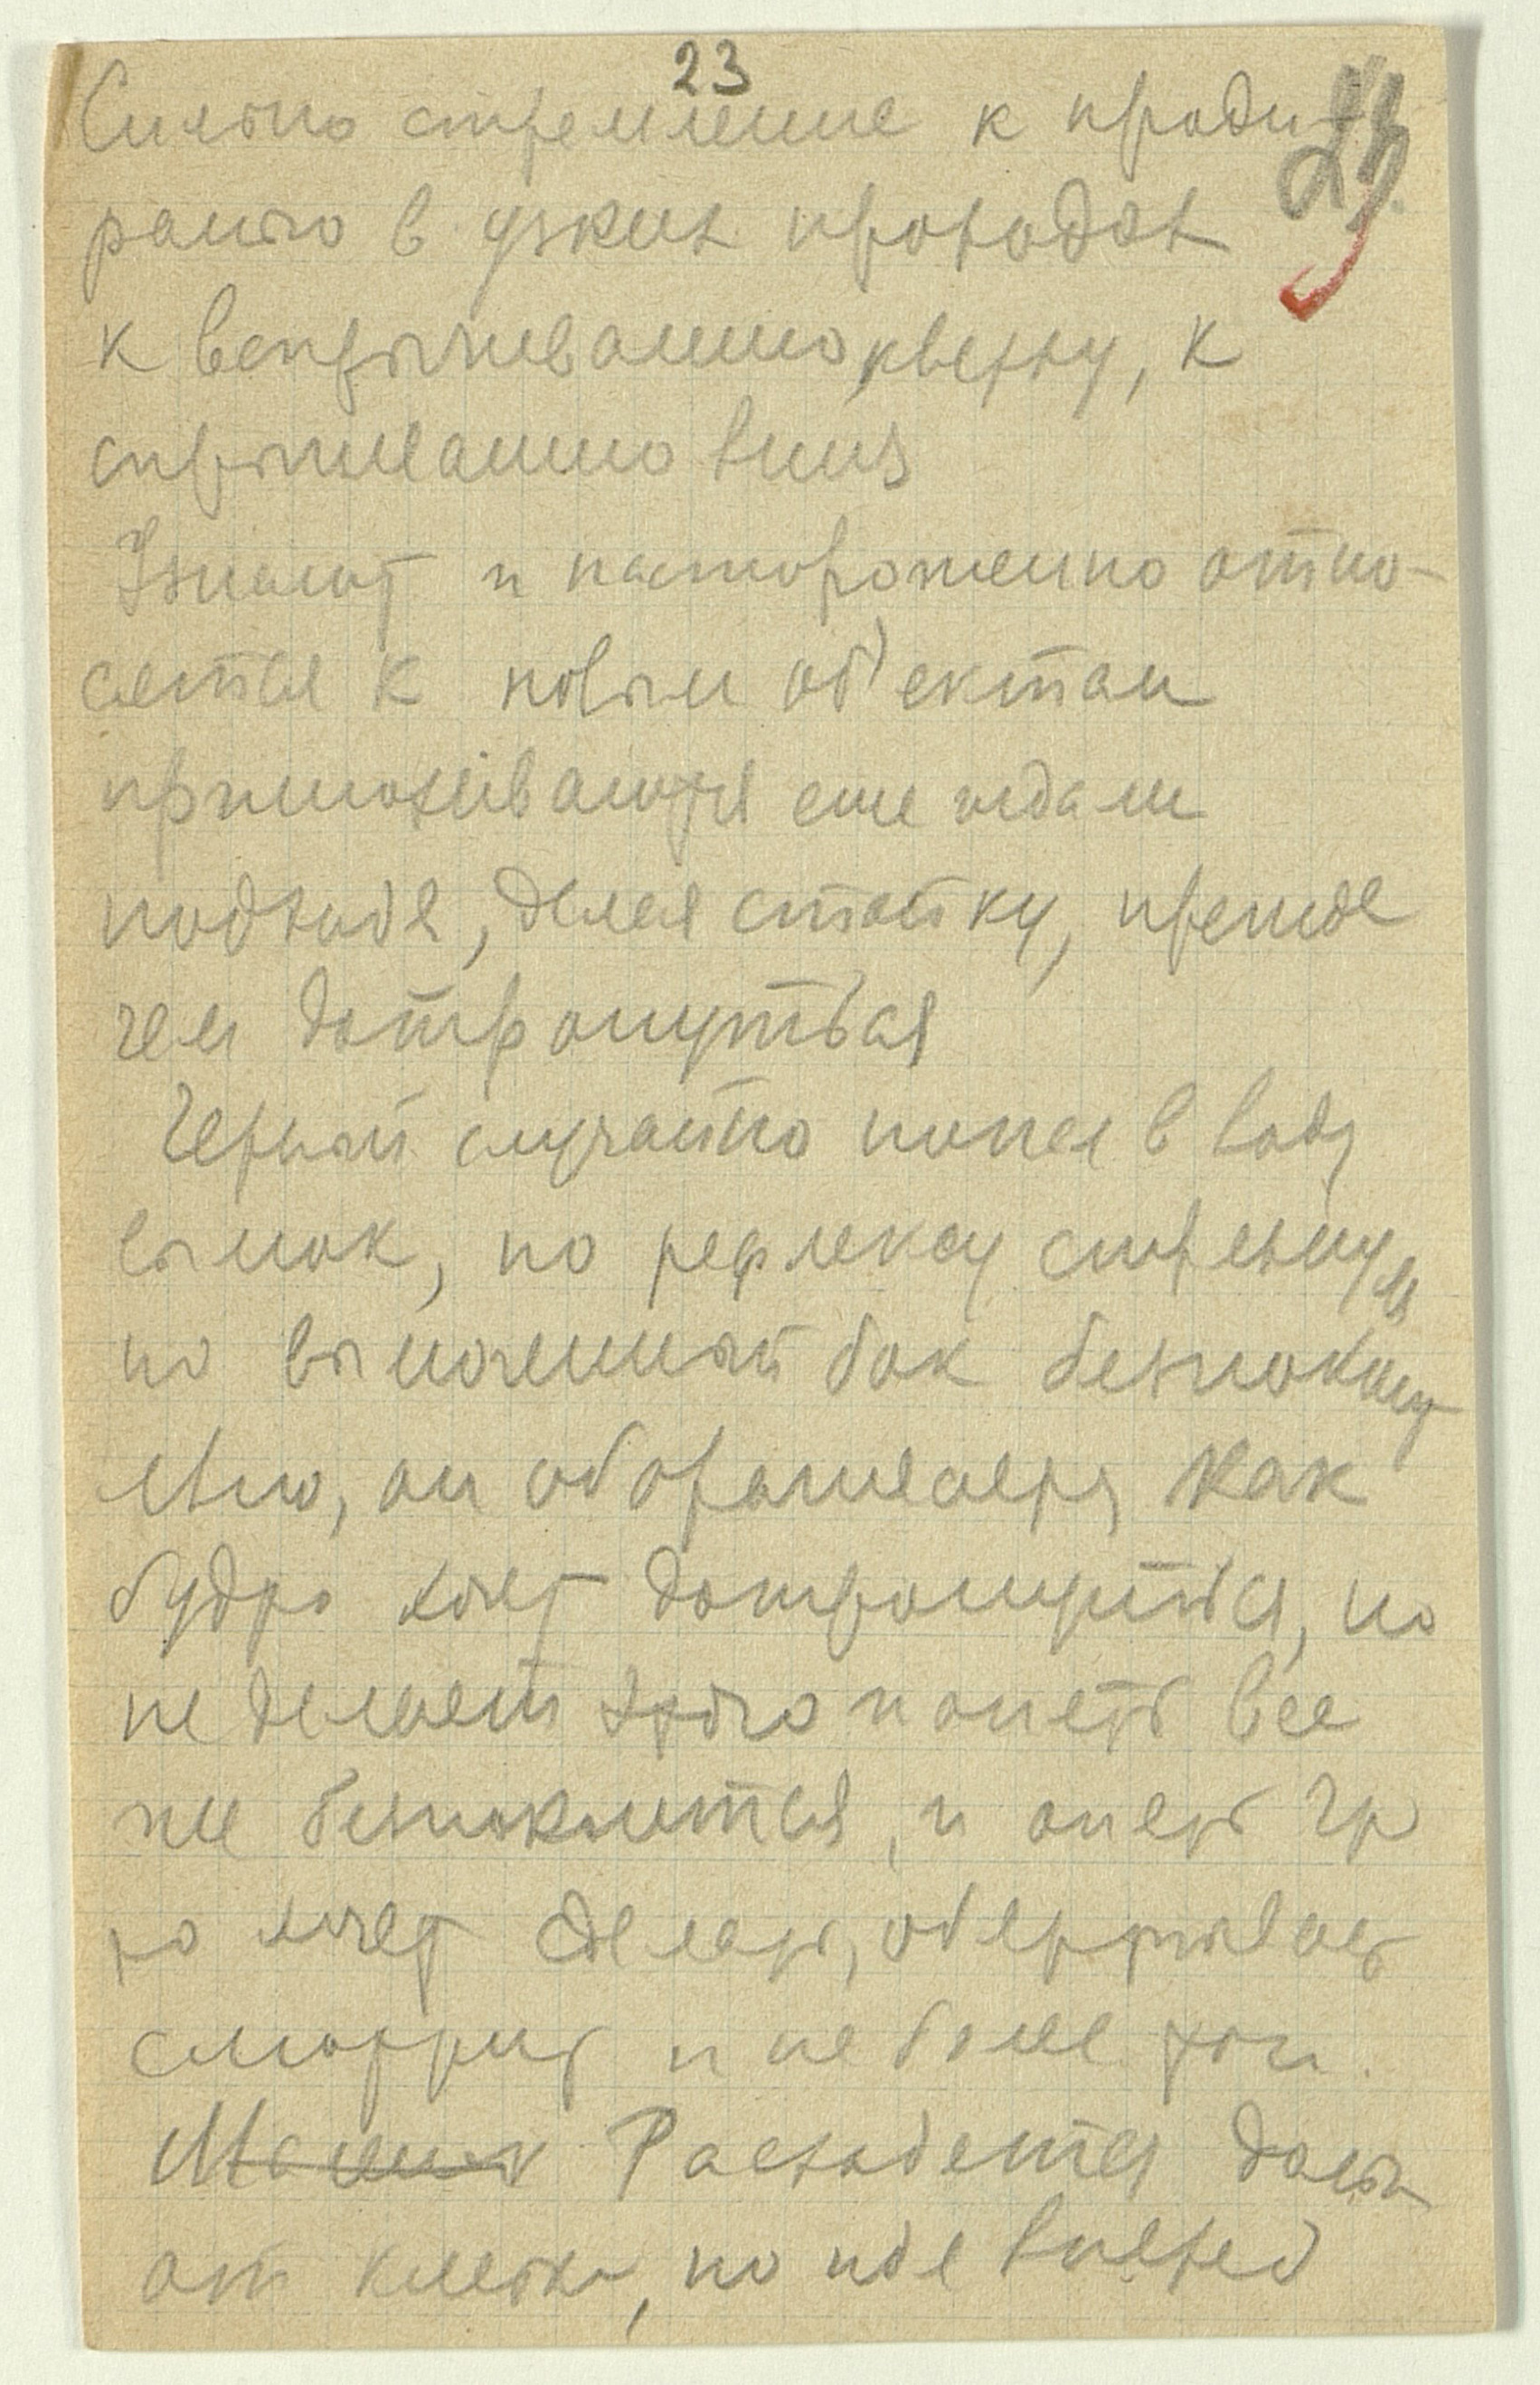 23
Сильно стремление к проди-
ранью в узких проходах
к вспрыгиванию кверху, к
спрыгиванию вниз
Узнают и настороженно отно-
сятся к новым об'ектам
принюхиваются еще издали
подходя, делая стойку, прежде
чем дотронуться
Черный случайно попал в воду
вымок, по рефлексу стряхнул
но вымоченный бок
он оборачивается как
будто хочет дотронуться, но
не делает этого и опять все
же беспокоится, и опять что
то хочет сделать, обертывает
смотрит и не более того.
Расходятся
от клетки, но идя вслед